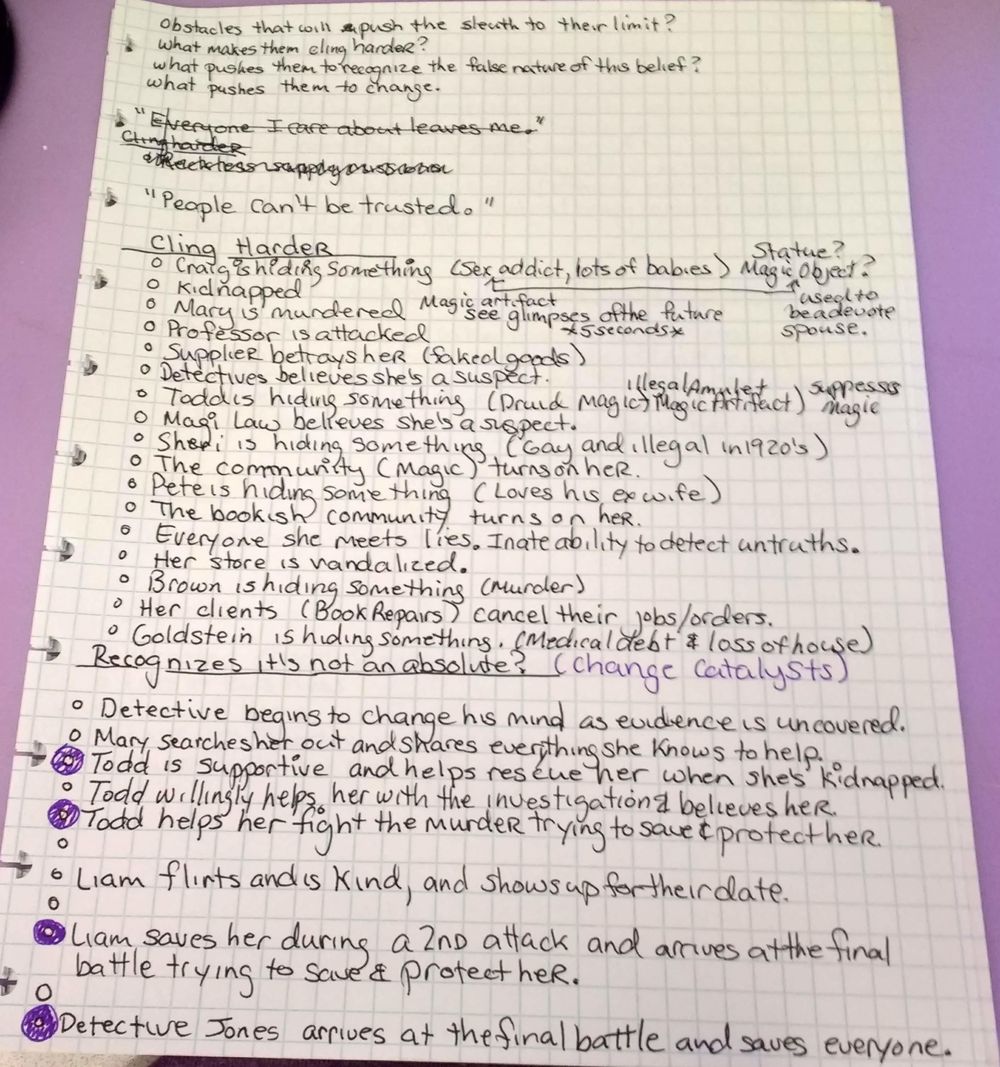 Obstacles that will push the sleuth to their limit?
What makes them cling harder?
what pushes them to recognize the false nature of this belief?
what pushes them to change.
"Everyone I care about leaves me."
Cling harder
"People can't be trusted."
Cling Harder
Statue?
○ Craig is hiding something (Sex addict, lots of babies) Magic Object?
○ Kidnapped
used to be a devote spouse.
○ Mary is murdered Magic artifact see glimpses of the future
○ Professor is attacked *5 seconds*
○ Supplier betrays her (faked goods)
○ Detectives believes she's a suspect.
○ Todd is hiding something (Druid Magic) Magic Artifact) illegal Amulet suppresses Magic
○ Magi Law believes she's a suspect.
○ Sheri is hiding something (Gay and illegal in 1920's)
○ The community (Magic) turns on her.
○ Pete is hiding something (Loves his ex wife)
○ The bookish community turns on her.
○ Everyone she meets lies. Inate ability to detect untruths.
○ Her store is vandalized.
○ Brown is hiding something (Murder)
○ Her clients (Book Repairs) cancel their jobs/orders.
○ Goldstein is hiding something. (Medical debt & loss of house)
Recognizes it's not an absolute? (Change Catalysts)
○ Detective begins to change his mind as evidence is uncovered.
○ Mary searches her out and shares everything she knows to help.
○ Todd is supportive and helps rescue her when she's kidnapped.
○ Todd willingly helps her with the investigation & believes her.
○ Todd helps her fight the murder trying to save & protect her.
○
○ Liam flirts and is kind, and shows up for their date.
○
○ Liam saves her during a 2nd attack and arrives at the final
battle trying to save & protect her.
○
○ Detective Jones arrives at the final battle and saves everyone.